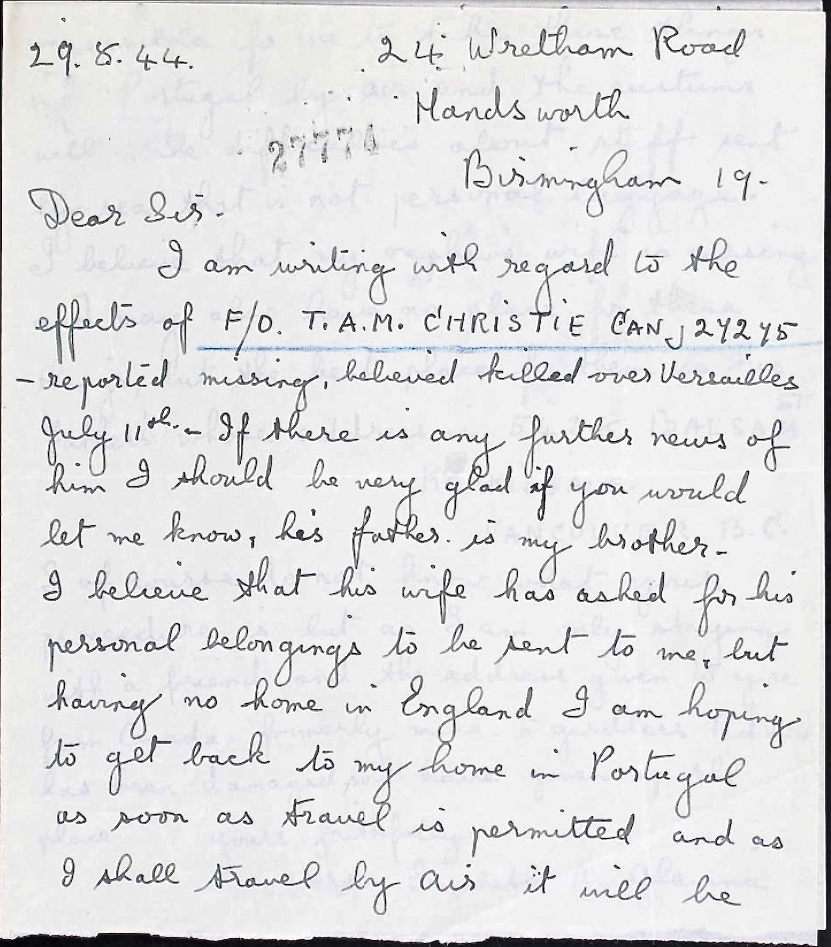 29.8.44.
24 Wretham Road
Handsworth
27774
Birmingham 19.
Dear Sir.
I am writing with regard to the
effects of F/O. T.A.M. CHRISTIE CAN J27275
- reported missing, believed killed over Versailles
July 11th. - If there is any further news of
him I should be very glad if you would
let me know, he's father. is my brother -
I believe that his wife has asked for his
personal belongings to be sent to me, but
having no home in England I am hoping
to get back to my home in Portugal
as soon as travel is permitted and as
I shall travel by air it will be